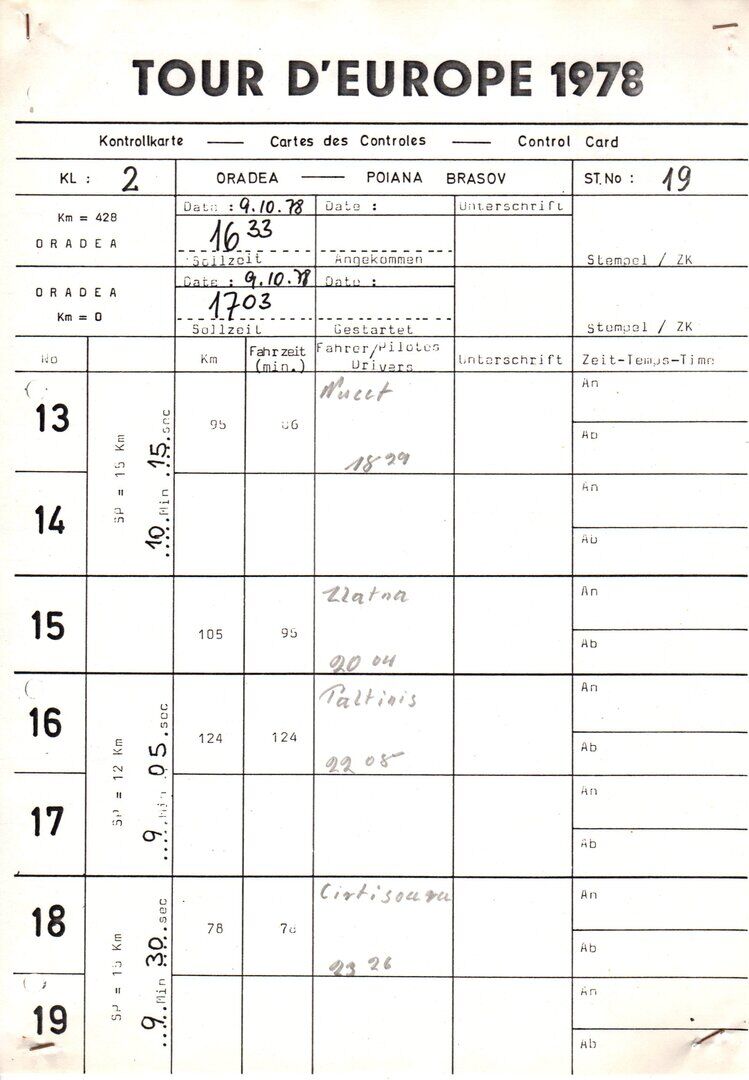 TOUR D'EUROPE 1978
Kontrollkarte — Cartes des Controles — Control Card
KL : 2 ORADEA — POIANA BRASOV ST.No : 19
Km = 428
ORADEA
Date : 9.10.78 Date : Unterschrift
16 33
Sollzeit Angekommen Stempel / ZK
ORADEA
Km = 0
Date : 9.10.78 Date :
17 03
Sollzeit Gestartet Stempel / ZK
No Km Fahrzeit (min.) Fahrer/Pilotes Drivers Unterschrift Zeit-Temps-Time
13 95 Nucet An
18 29 Ab
SP = 15 Km
10 Min 15 sec
14 An
Ab
15 105 95 Zlatna An
20 04 Ab
16 124 124 Paltinis An
22 08 Ab
SP = 12 Km
9 Min 05 sec
17 An
Ab
18 78 78 Cirtisoara An
23 26 Ab
SP = 15 Km
9 Min 30 sec
19 An
Ab